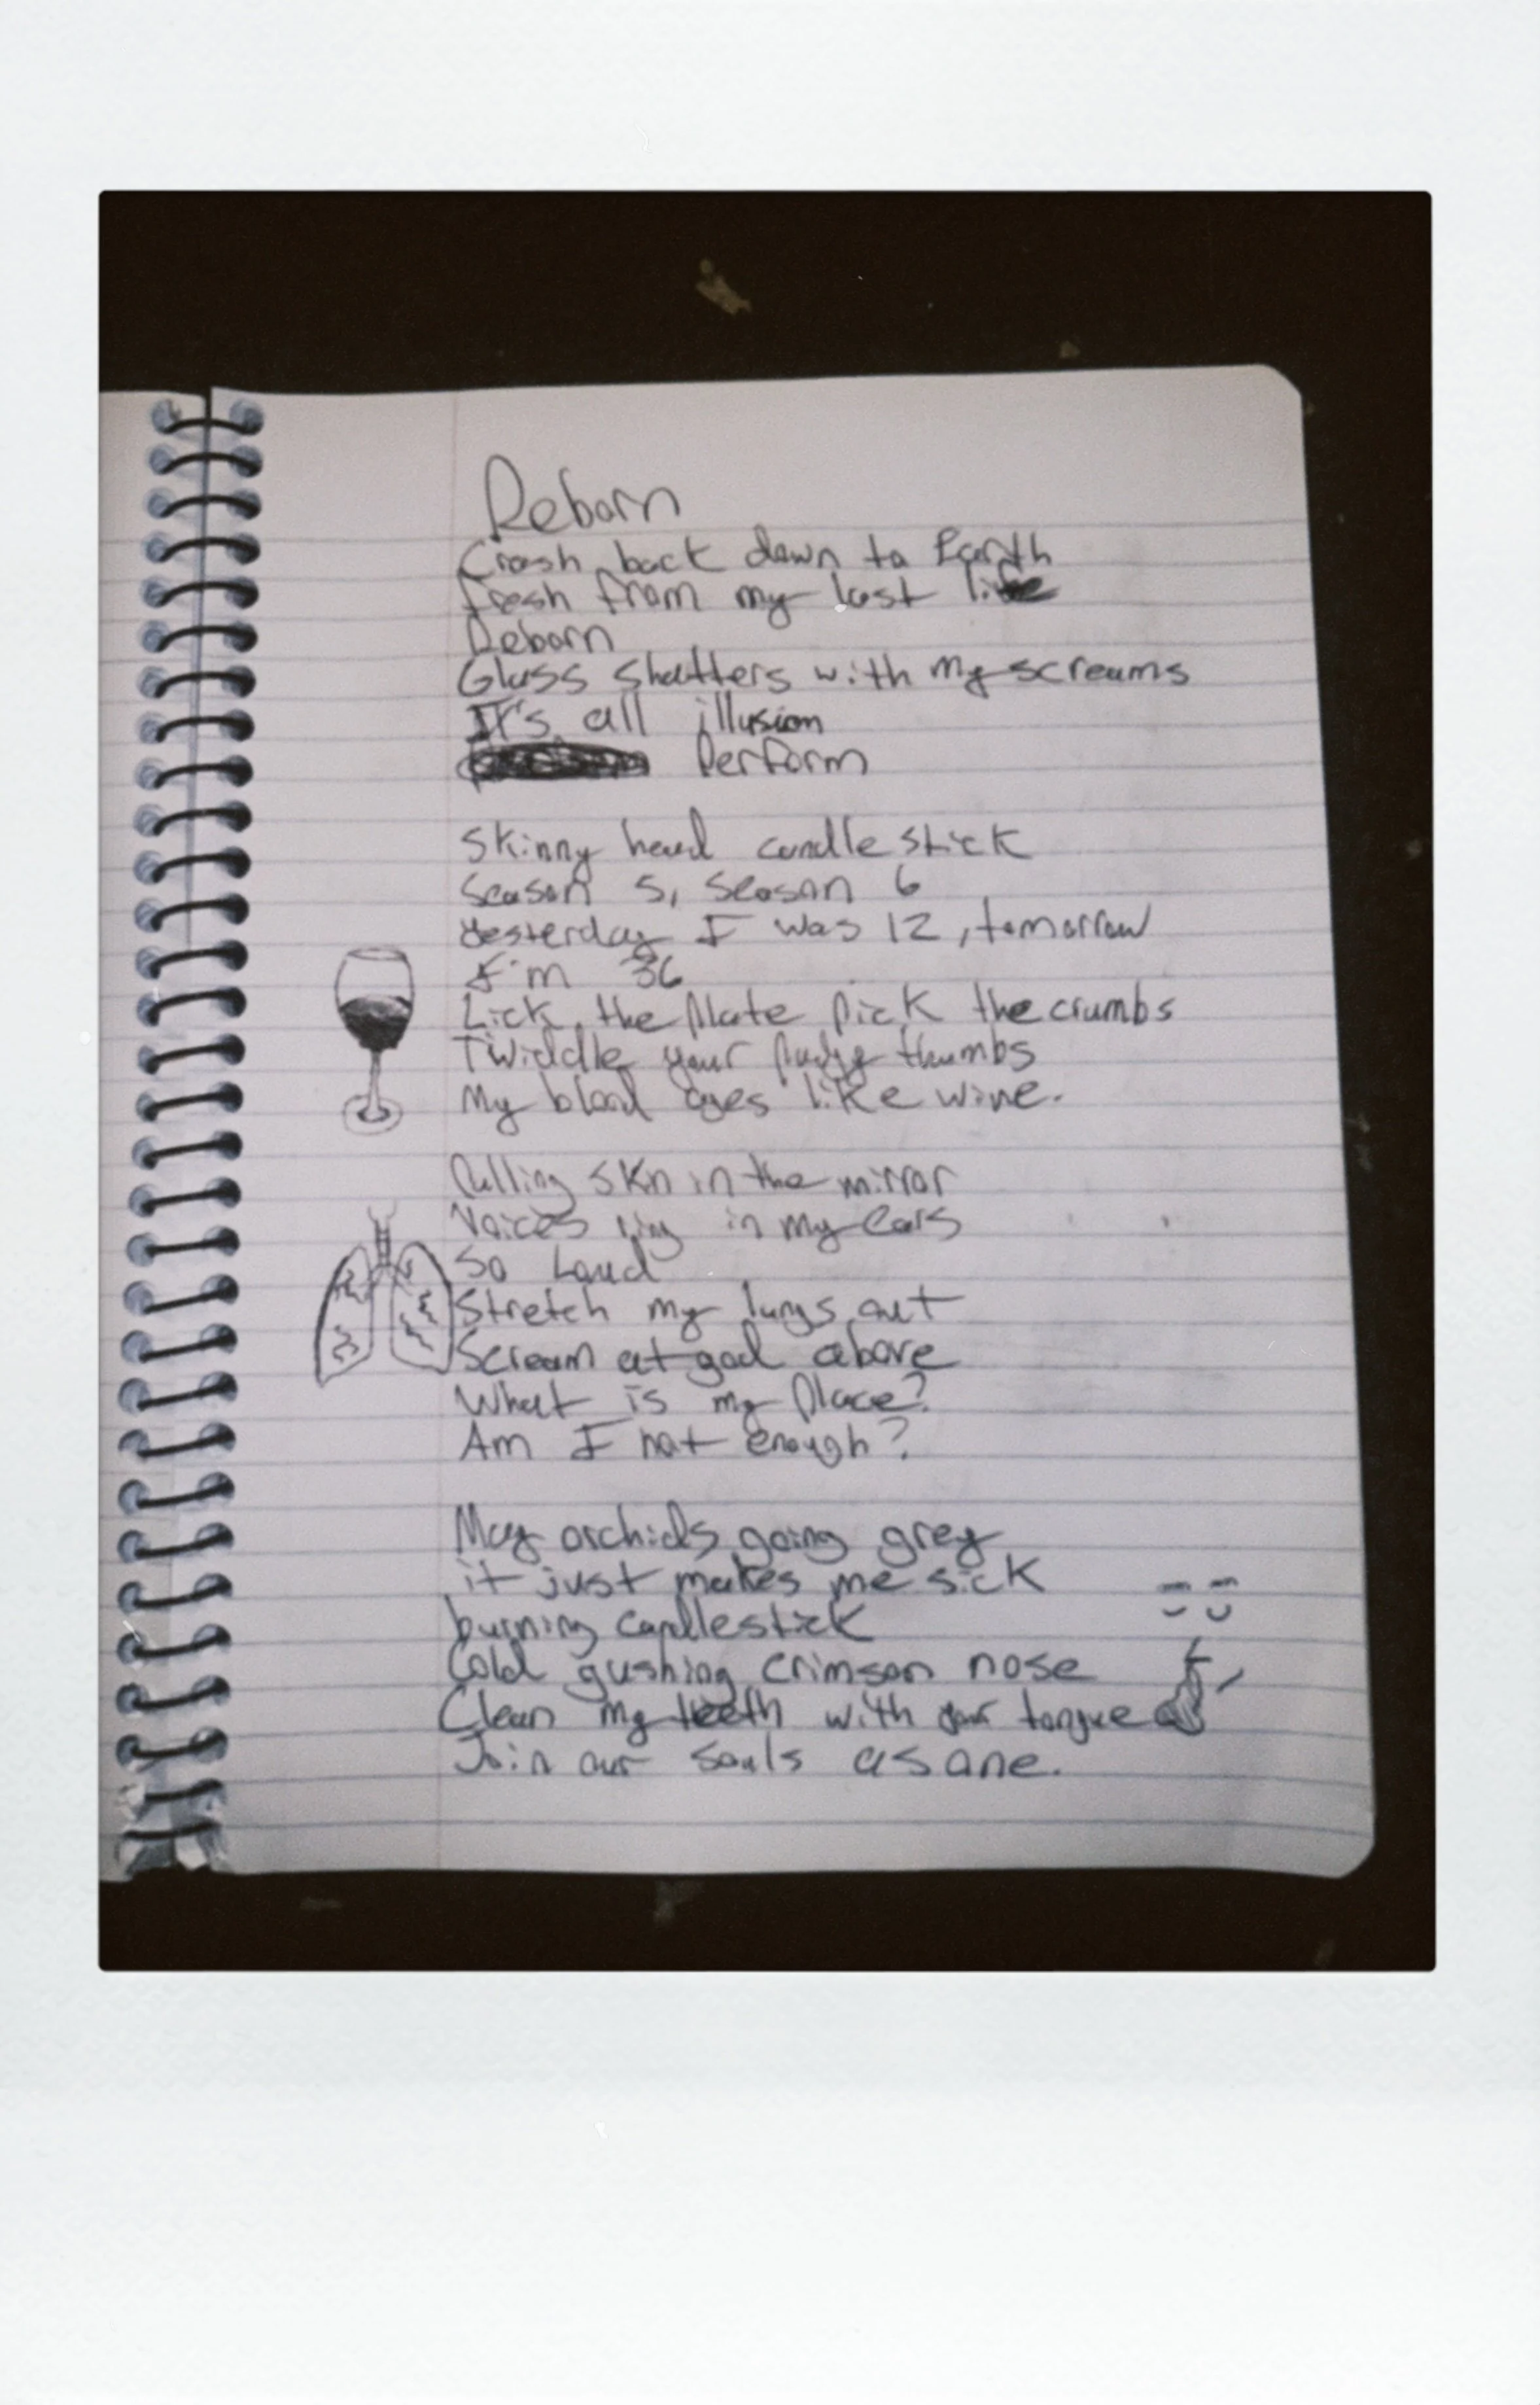 Reborn
Crash back down to Earth
fresh from my last life
Reborn
Glass shatters with my screams
It's all illusion
Perform
Skinny head candle stick
Season 5, Season 6
Yesterday I was 12, tomorrow
I'm 36
Lick the plate pick the crumbs
Twiddle your pudgy thumbs
My blood ages like wine.
Pulling skin in the mirror
Voices ring in my ears
So Loud
Stretch my lungs out
Scream at god above
What is my place?
Am I not enough?
May orchids going grey
it just makes me sick
burning candlestick
Cold gushing crimson nose
Clean my teeth with your tongue
Join our souls as one.